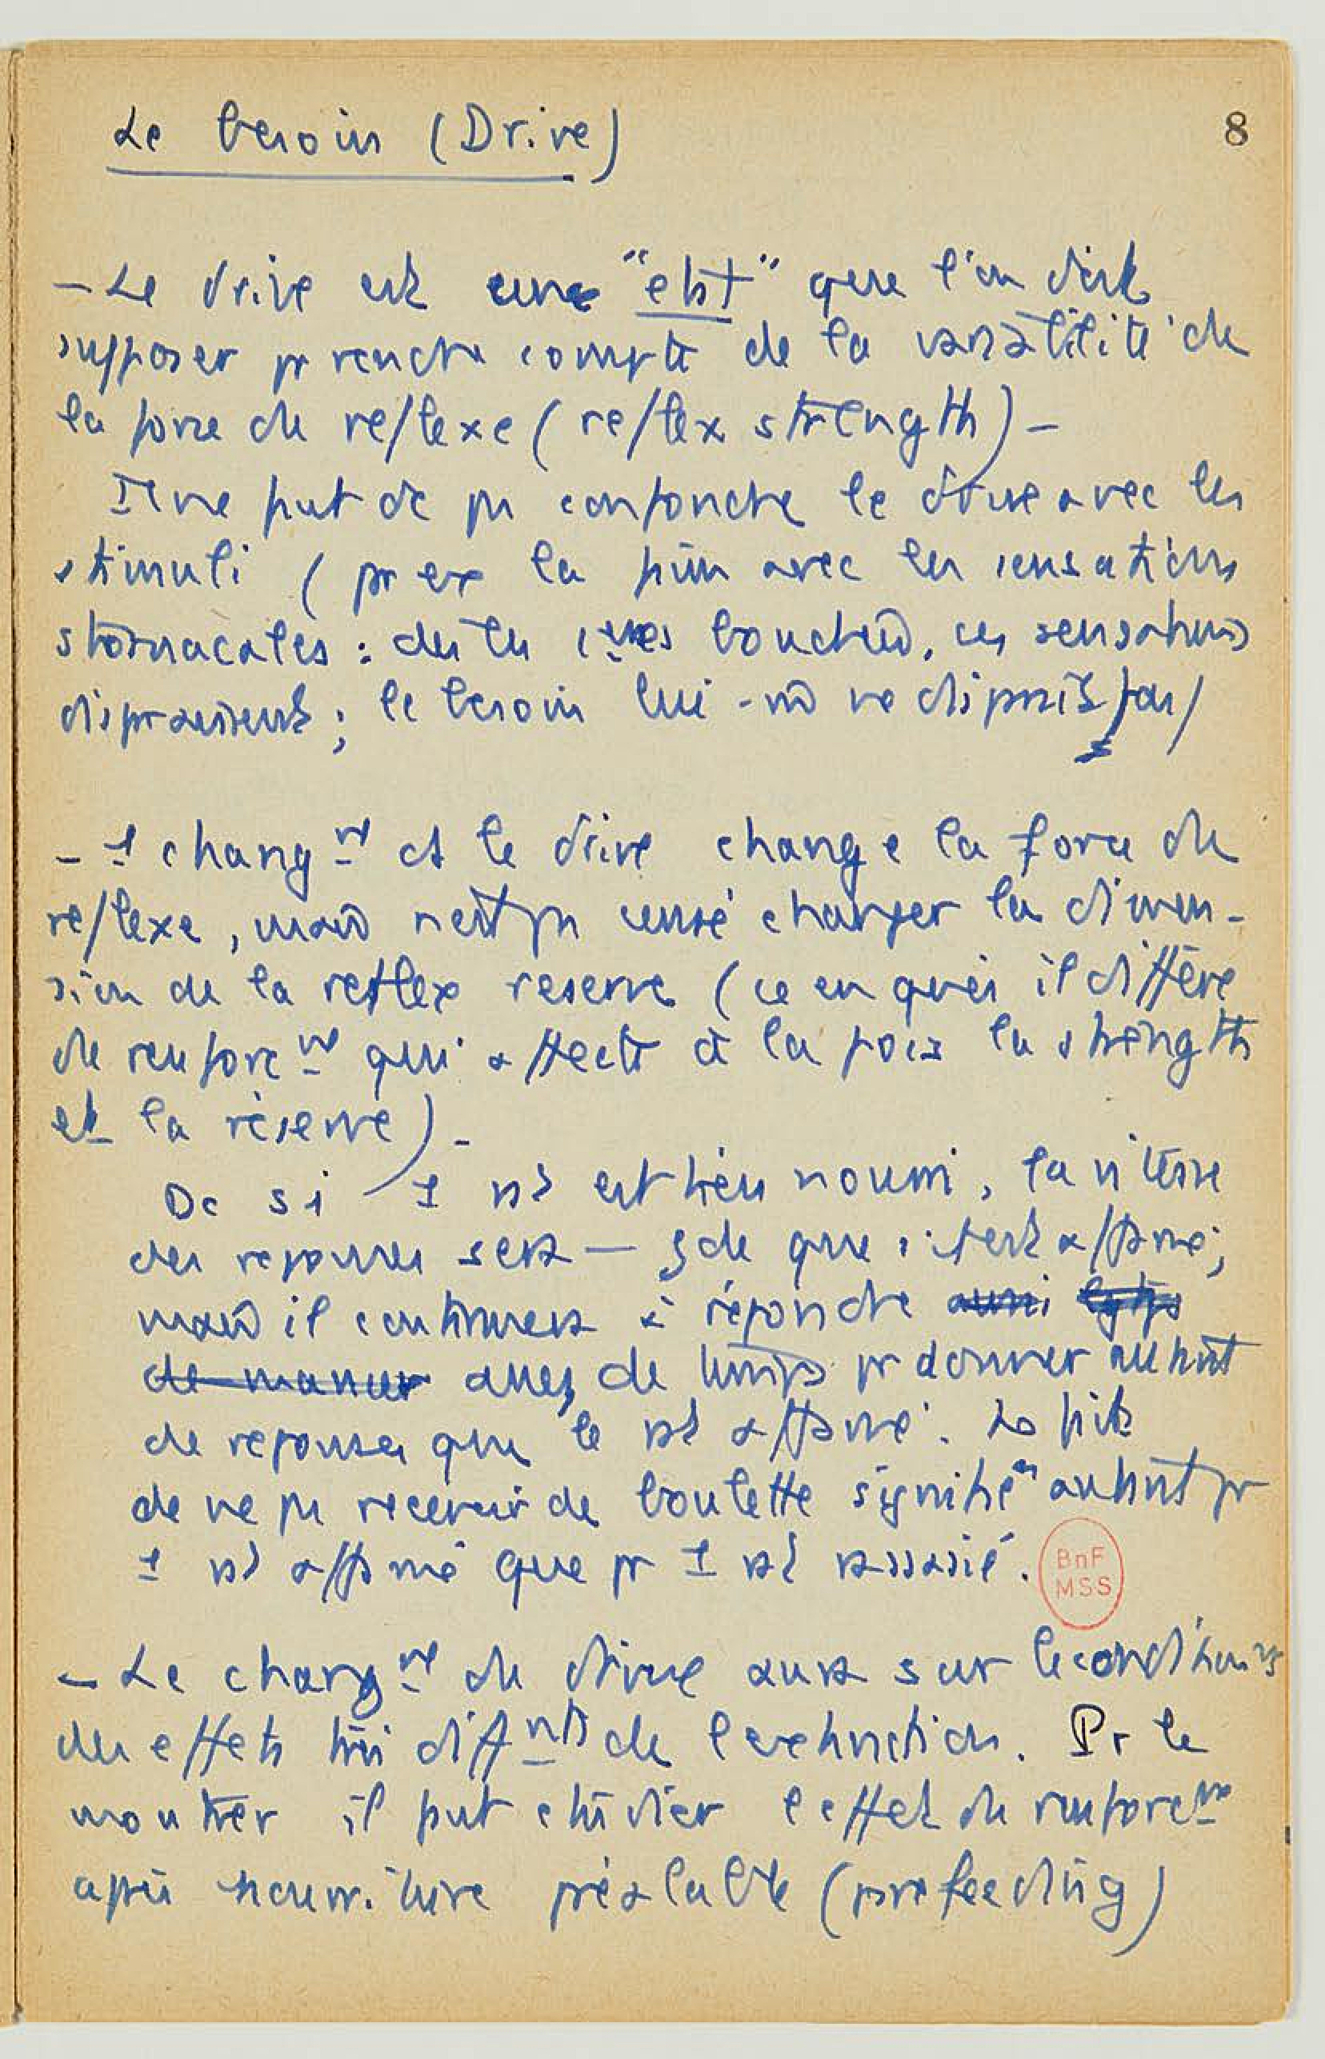 Le besoin (Drive)
8
- Le drive est une "ebt" que l'on doit
supposer pr rendre compte de la variabilité de
la force du reflexe (reflex strength) -
Il ne faut dc pas confondre le drive avec les
stimuli (pr ex la faim avec les sensations
stomacales : ds tu bouches, ces sensations
disparaissent ; le besoin lui-m̂ ne disparaît pas)
- 1 changnt ds le drive change la force du
reflexe, mais n'est pas censé changer la dimen-
sion de la reflex reserve (ce en quoi il diffère
du renforcnt qui affecte à la fois la strength
et la réserve) -
Dc si 1 rat est bien nourri, la vitesse
des reponses sera — gde que s'il est affamé ;
mais il continuera à répondre aussi lgtps
de manier assez de temps pr donner autant
de reponses que le rat affamé. Le fait
de ne pas recevoir de boulette signifie autant pr
1 rat affamé que pr 1 rat rassasié.
BnF
MSS
- Le changnt du drive aura sur le conditionnt
des effets très diffnts de l'extinction. Pr le
montrer il faut étudier l'effet du renforcnt
après nourriture préalable (prefeeding)